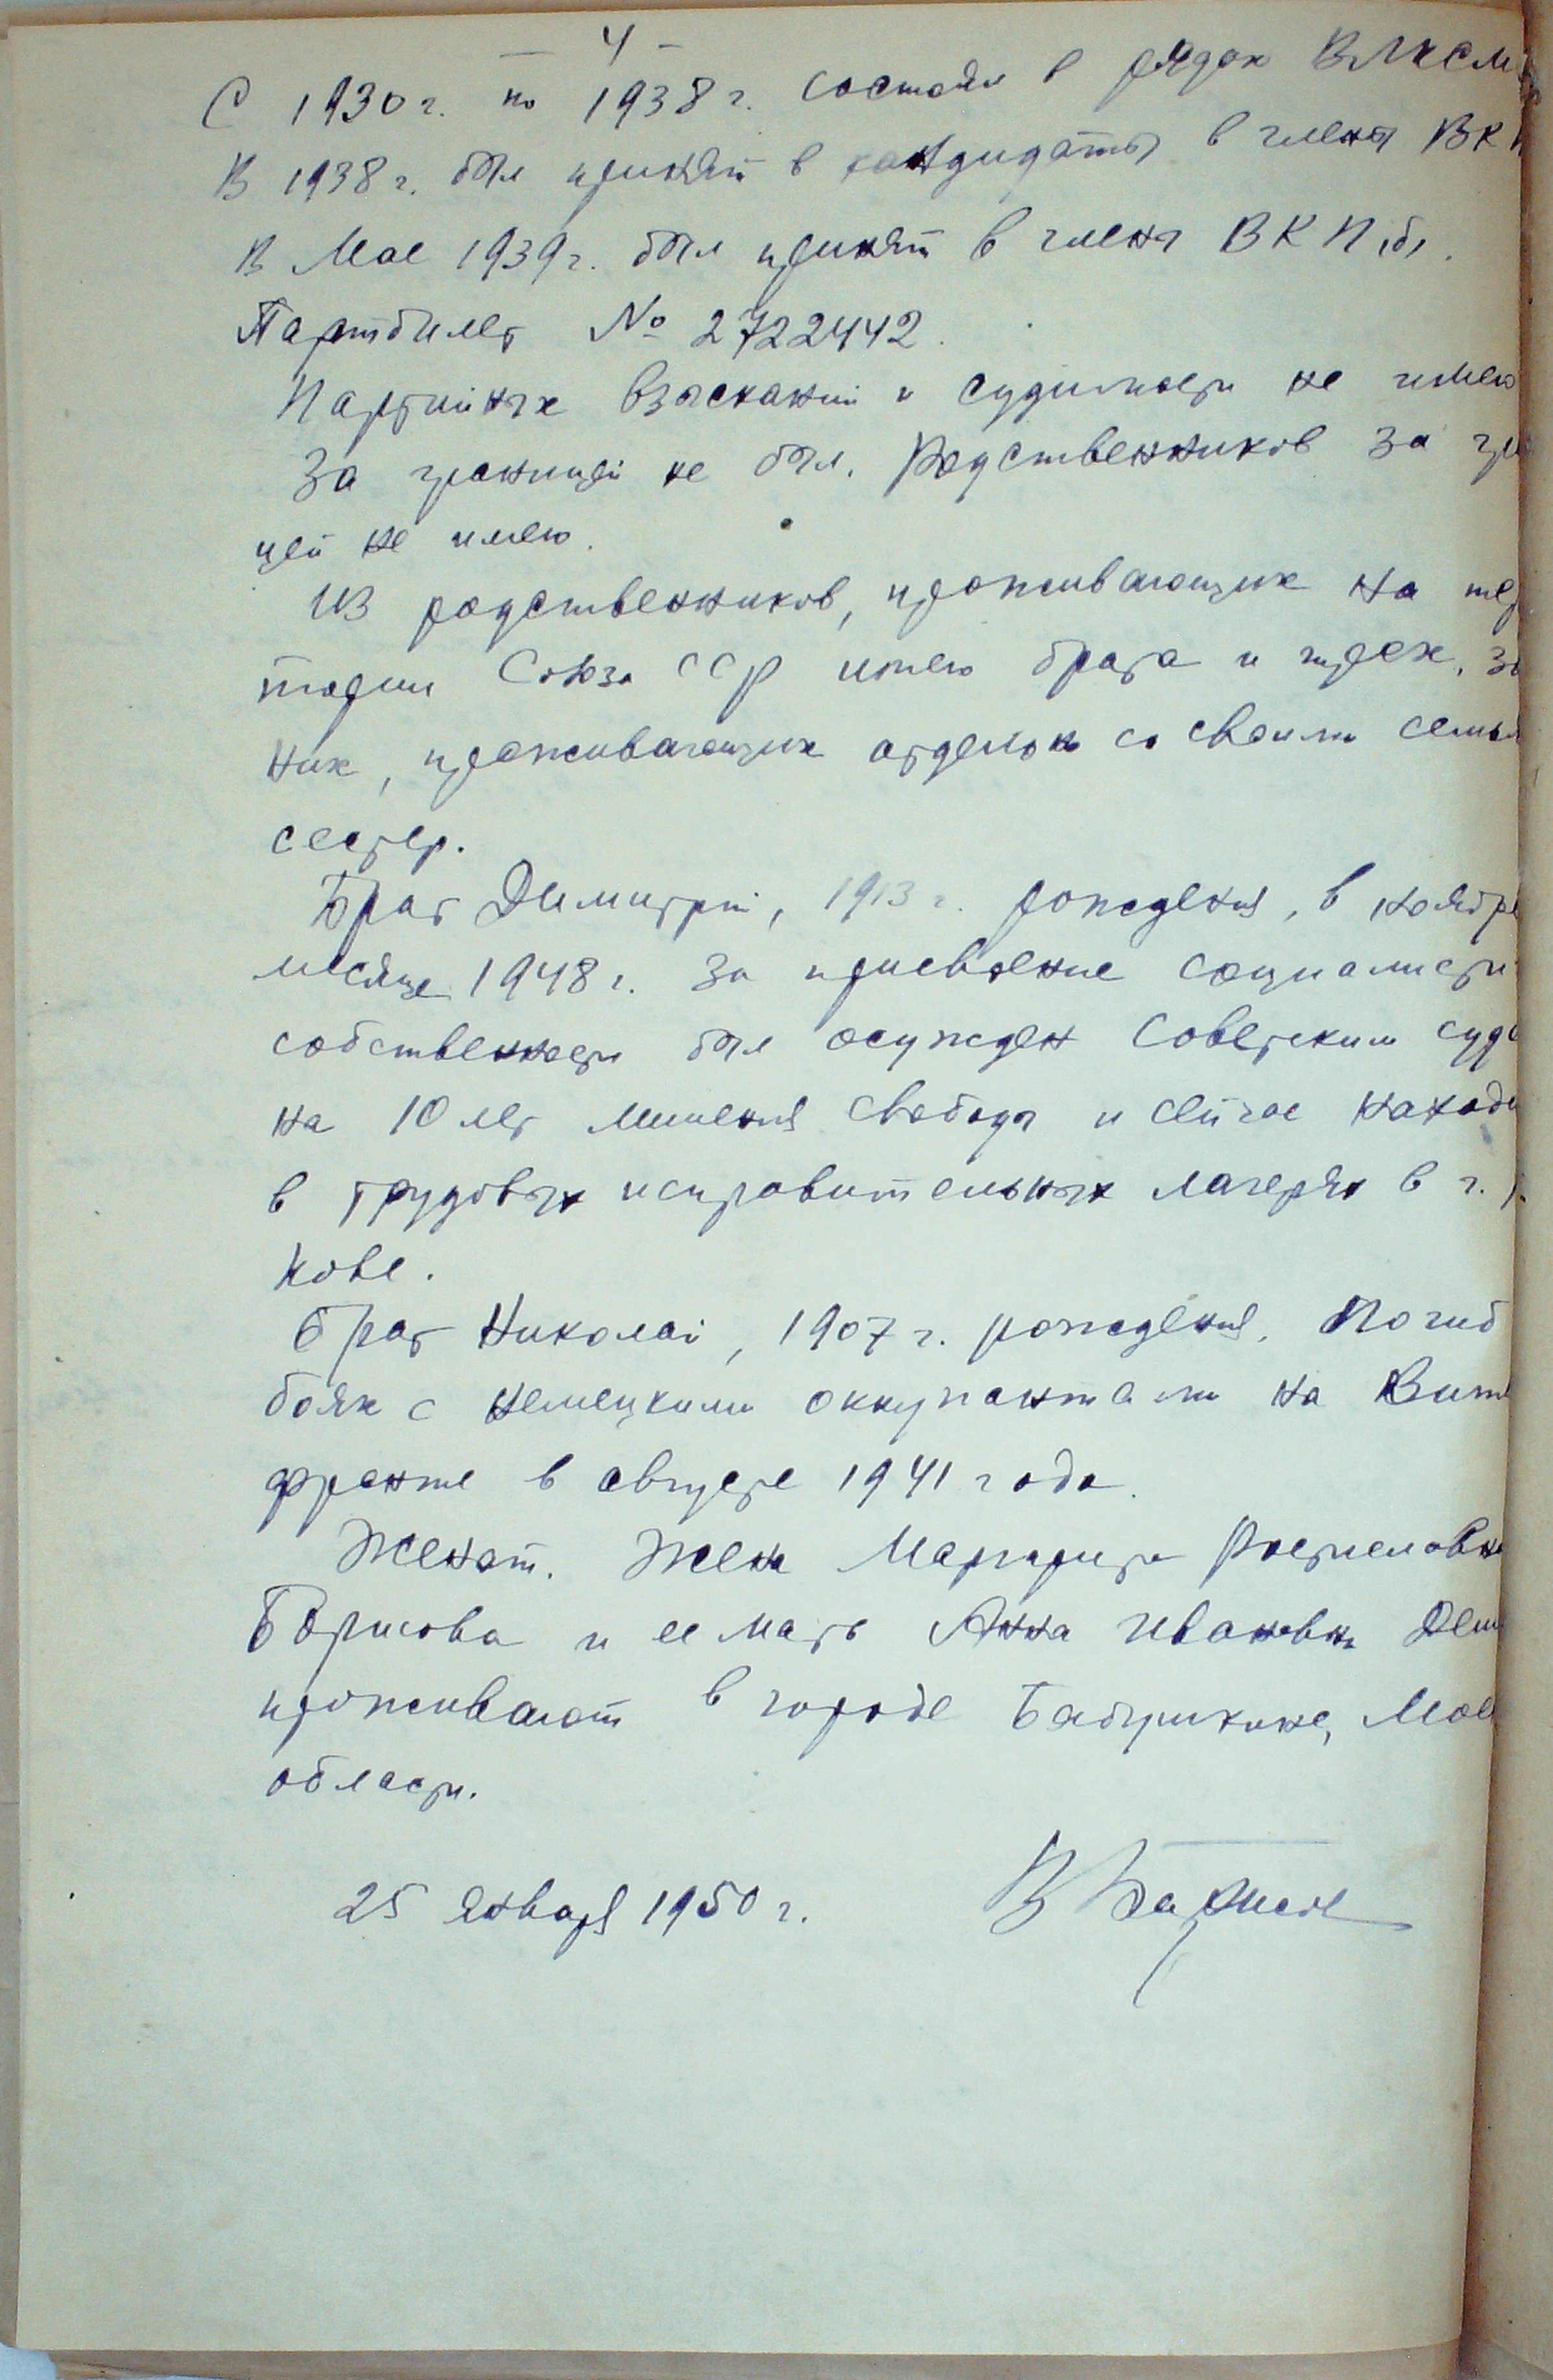 — 4 —
С 1930 г. по 1938 г. состоял в рядах ВЛКСМ
В 1938 г. был принят в кандидаты в члены ВК
В Мае 1939 г. был принят в члены ВКП(б).
Партбилет № 2722442.
Партийных взысканий и судимости не имею
За границей не был. Родственников за гра
цей не имею.
Из родственников, проживающих на тер
тории Союза ССР имею брата и трех, за
них, проживающих отдельно со своими семья
сестер.
Брат Димитрий, 1913 г. рождения, в ноябре
месяце 1948 г. за присвоение социалисти
собственности был осужден Советским судо
на 10 лет лишения свободы и сейчас находи
в трудовых исправительных лагерях в г.
кове.
Брат Николай, 1907 г. рождения. Погиб
боях с немецкими оккупантами на Вит
фронте в августе 1941 года.
Женат. Жена Маргарита Ростиславовна
Борисова и ее мать Анна Ивановна
проживают в городе Бабушкине, Мос
области.
25 января 1950 г.